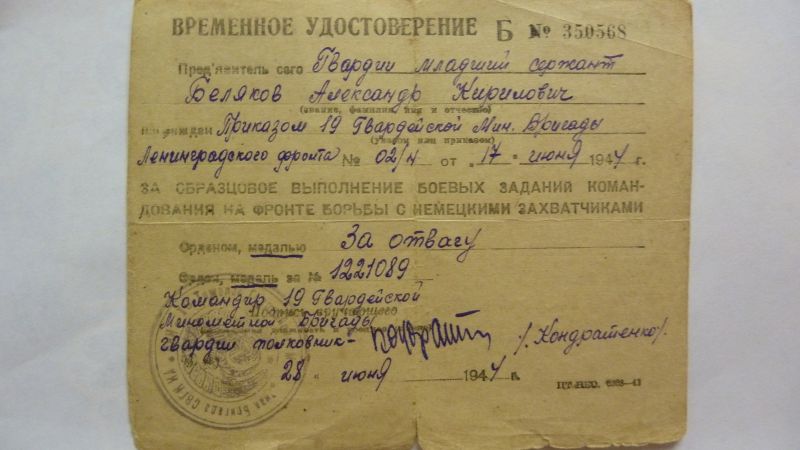 ВРЕМЕННОЕ УДОСТОВЕРЕНИЕ Б № 350568
Пред'явитель сего Гвардии младший сержант
Беляков Александр Кирилович
(звание, фамилия, имя и отчество)
награжден Приказом 19 Гвардейской Мин. Бригады
(указом или приказом)
Ленинградского фронта № 02/н от "17" июня 1944 г.
ЗА ОБРАЗЦОВОЕ ВЫПОЛНЕНИЕ БОЕВЫХ ЗАДАНИЙ КОМАН-
ДОВАНИЯ НА ФРОНТЕ БОРЬБЫ С НЕМЕЦКИМИ ЗАХВАТЧИКАМИ
Орденом, медалью За отвагу
Орден, медаль за № 1221089
Командир 19 Гвардейской
Подпись вручившего
Минометной Бригады
гвардии полковник- /Кондратенко/.
"28" июня 1944 г.